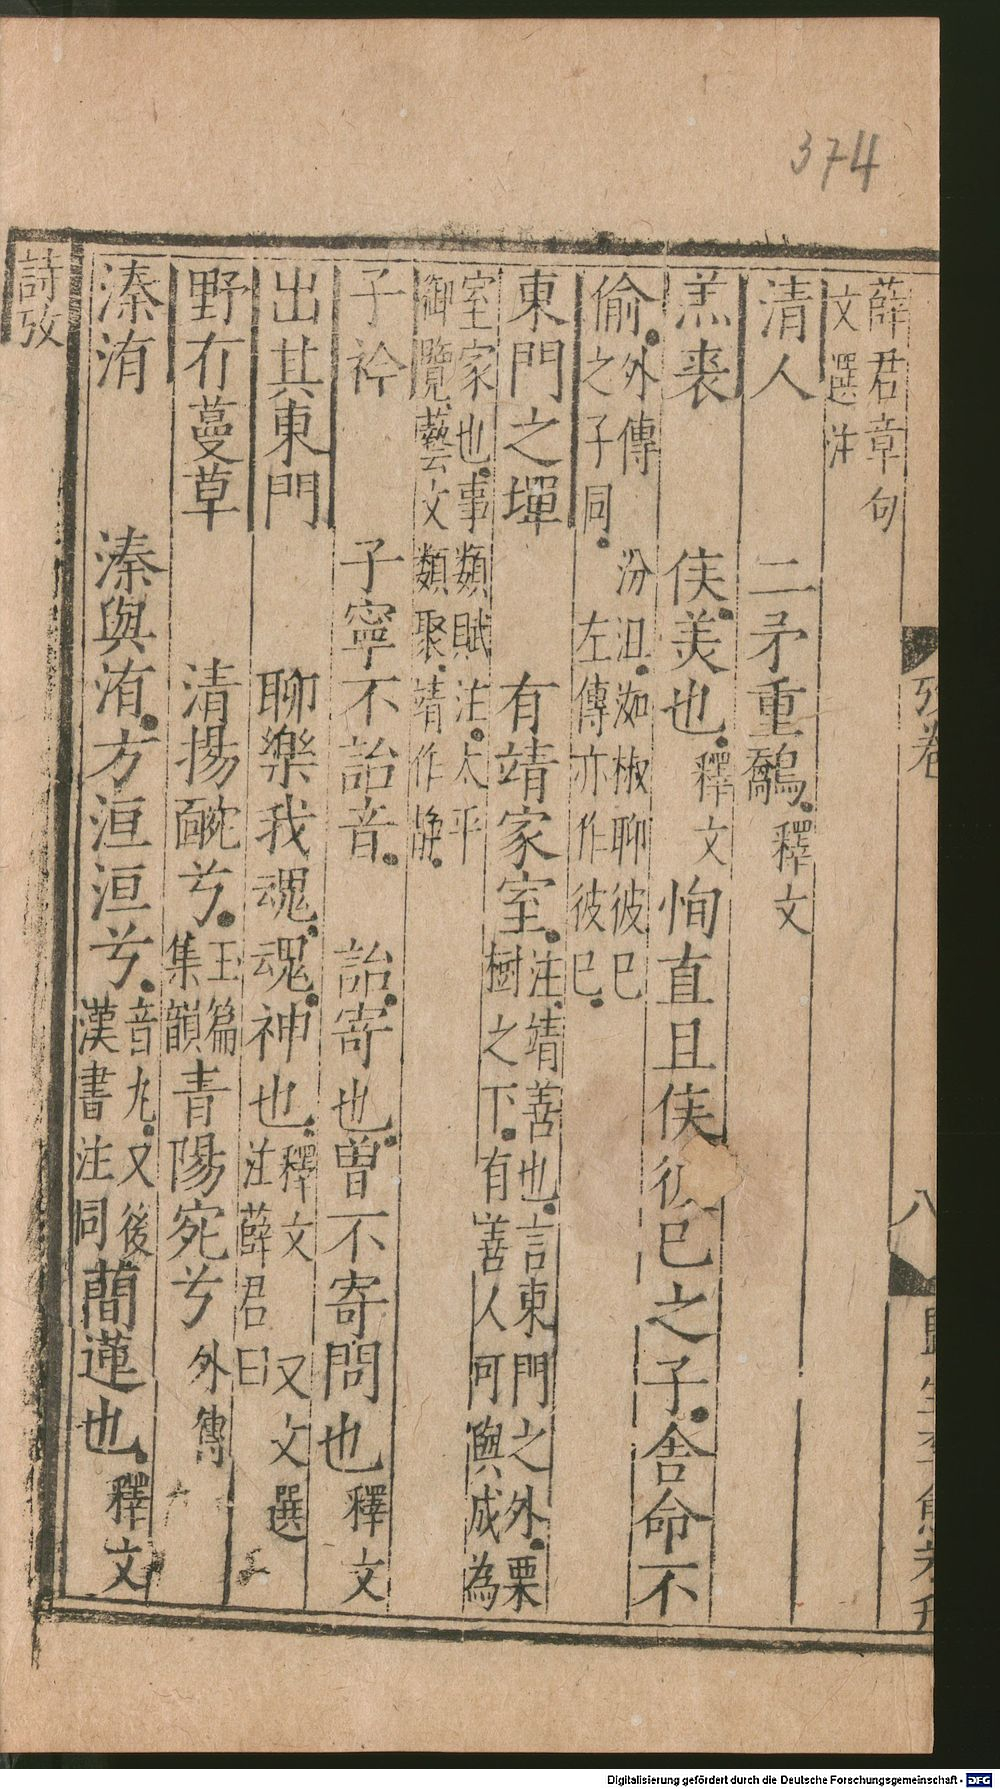 374
攷卷
八
薛君章句
文選注
清人 二矛重鷮 釋文
羔裘 侯美也 釋文 恂直且侯 彼已之子 舍命不
偷 外傳
之子同 汾沮洳椒聊彼已
左傳亦作彼已
東門之墠 有靖家室 注靖善也言東門之外栗
樹之下有善人可與成為
室家也 事類賦注太平
御覽藝文類聚靖作静
子衿 子寧不詒音 詒寄也曾不寄問也 釋文
出其東門 聊樂我魂 魂神也 釋文 又文選
注薛君曰
野有蔓草 清揚畹兮 玉篇
集韻 青陽宛兮 外傳
溱洧 溱與洧方洹洹兮 音丸又後
漢書注同 蕑蓮也 釋文
詩攷
Digitalisierung gefördert durch die Deutsche Forschungsgemeinschaft - DFG